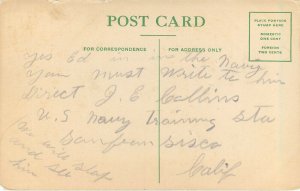 POST CARD
PLACE POSTAGE
STAMP HERE
DOMESTIC
ONE CENT
FOREIGN
TWO CENTS
FOR CORRESPONDENCE
FOR ADDRESS ONLY
yes Ed is in the Navy
you must write to him
Direct J. E. Collins
U.S Navy training Sta
Sanfransisco
Calif
we will stop
and see
him